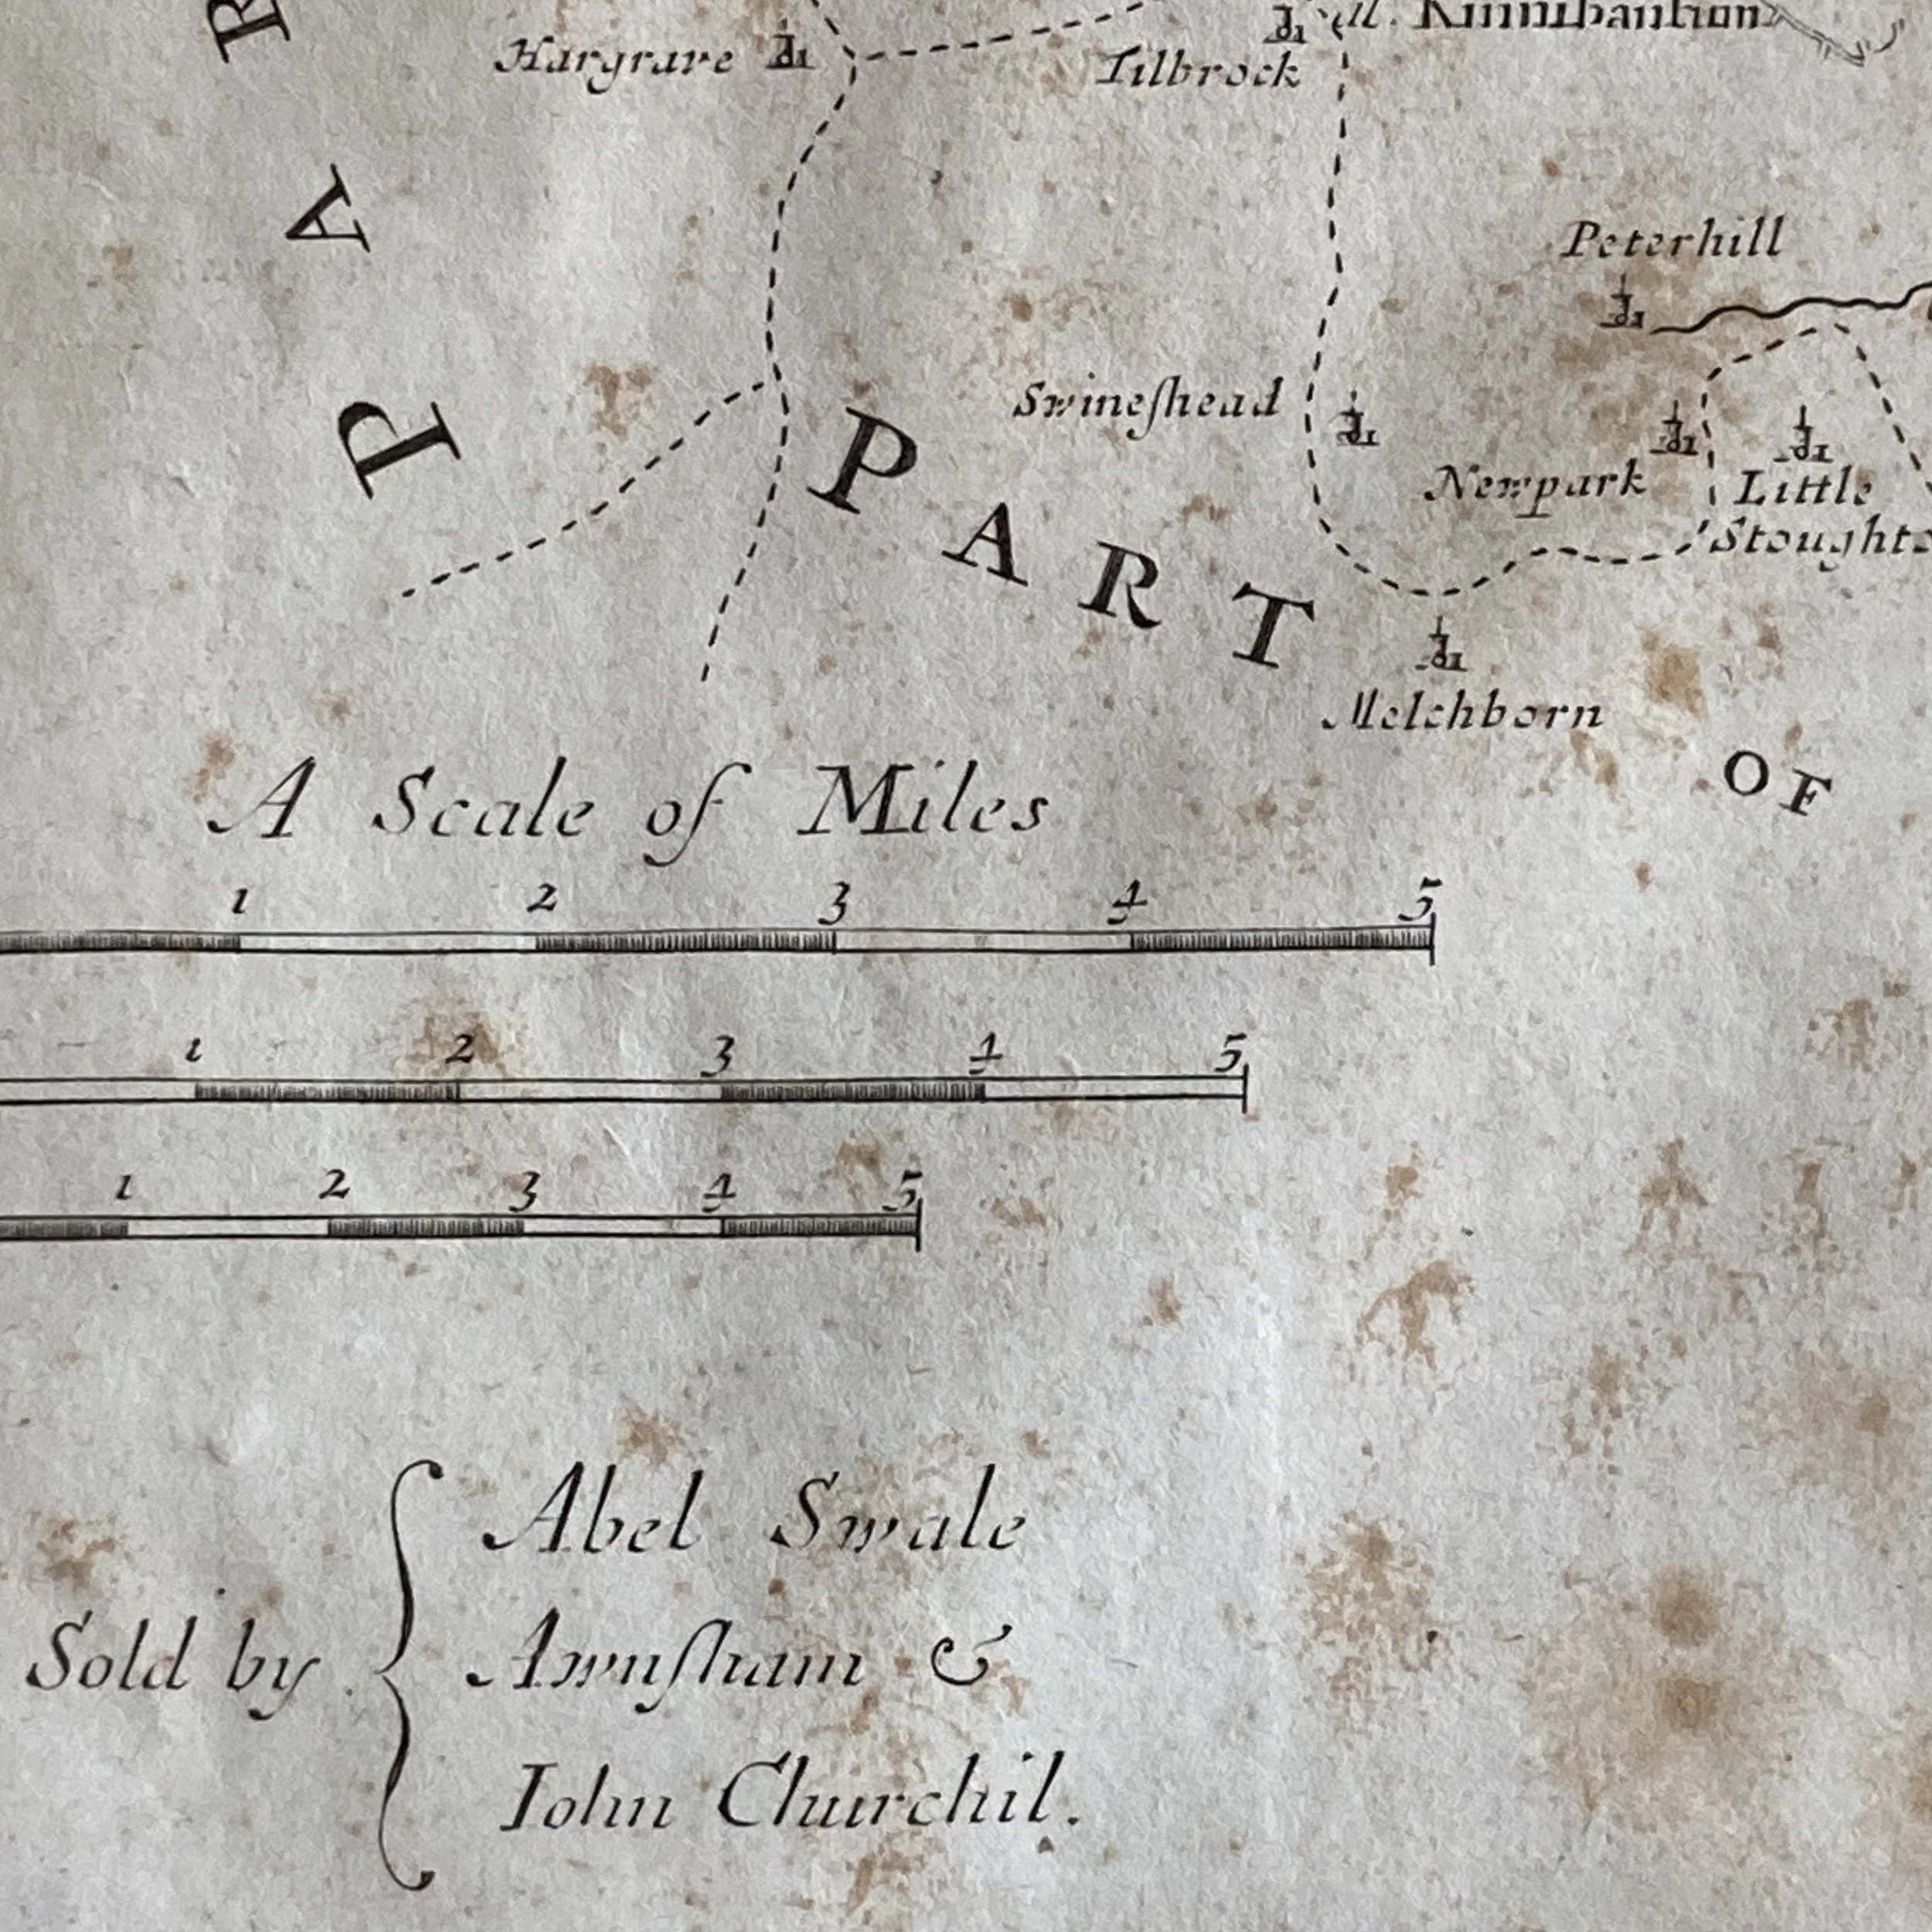 Hargrave
Tilbrock
Peterhill
Swineſhead
Newpark
Little
Melchborn
PAR
PART
OF
A Scale of Miles
1 2 3 4 5
1 2 3 4 5
1 2 3 4 5
Sold by
Abel Swale
Awnſham &
Iohn Churchil.